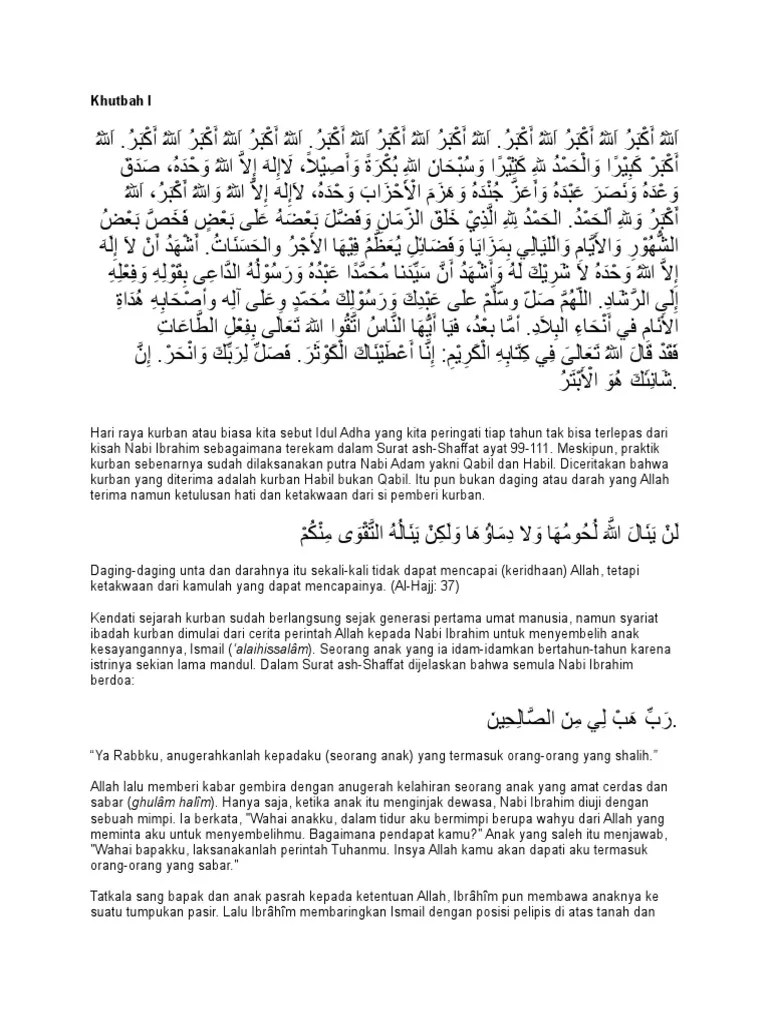 Khutbah I
اَللهُ أَكْبَرُ اَللهُ أَكْبَرُ اَللهُ أَكْبَرُ. اَللهُ أَكْبَرُ اَللهُ أَكْبَرُ اَللهُ أَكْبَرُ. اَللهُ أَكْبَرُ اَللهُ أَكْبَرُ اَللهُ أَكْبَرُ. اَللهُ
أَكْبَرْ كَبِيْرًا وَالْحَمْدُ للهِ كَثِيْرًا وَسُبْحَانَ اللهِ بُكْرَةً وَأَصِيْلاً، لَاإِلٰهَ إِلاَّ اللهُ وَحْدَهُ، صَدَقَ
وَعْدَهُ وَنَصَرَ عَبْدَهُ وَأَعَزَّ جُنْدَهُ وَهَزَمَ الْأَحْزَابَ وَحْدَهُ، لاَإِلٰهَ إِلاَّ اللهُ وَاللهُ أَكْبَرُ، اَللهُ
أَكْبَرُ وَللهِ اْلحَمْدُ. الحَمْدُ لِلهِ الَّذِيْ خَلَقَ الزَّمَانَ وَفَضَّلَ بَعْضَهُ عَلَى بَعْضٍ فَخَصَّ بَعْضُ
الشُّهُوْرِ وَالأَيَّامِ وَالَليَالِي بِمَزَايَا وَفَضَائِلَ يُعَظَّمُ فِيْهَا الأَجْرُ والحَسَنَاتُ. أَشْهَدُ أَنْ لاَ إِلَهَ
إِلاَّ اللهُ وَحْدَهُ لاَ شَرِيْكَ لَهُ وَأَشْهَدُ أَنَّ سَيِّدَنا مُحَمَّدًا عَبْدُهُ وَرَسُوْلُهُ الدَّاعِى بِقَوْلِهِ وَفِعْلِهِ
إِلَى الرَّشَادِ. اللّهُمَّ صَلّ وسّلِّمْ علَى عَبْدِكَ وَرَسُوْلِكَ مُحَمّدٍ وِعَلَى آلِه وأصْحَابِهِ هُدَاةِ
الأَنَامِ في أَنْحَاءِ البِلاَدِ. أمَّا بعْدُ، فيَا أيُّهَا النَّاسُ اتَّقُوا اللهَ تَعَالَى بِفِعْلِ الطَّاعَاتِ
فَقَدْ قَالَ اللهُ تَعَالىَ فِي كِتَابِهِ الْكَرِيْمِ: إِنَّا أَعْطَيْنَاكَ الْكَوْثَرَ. فَصَلِّ لِرَبِّكَ وَانْحَرْ. إِنَّ
شَانِئَكَ هُوَ الْأَبْتَرُ.
Hari raya kurban atau biasa kita sebut Idul Adha yang kita peringati tiap tahun tak bisa terlepas dari
kisah Nabi Ibrahim sebagaimana terekam dalam Surat ash-Shaffat ayat 99-111. Meskipun, praktik
kurban sebenarnya sudah dilaksanakan putra Nabi Adam yakni Qabil dan Habil. Diceritakan bahwa
kurban yang diterima adalah kurban Habil bukan Qabil. Itu pun bukan daging atau darah yang Allah
terima namun ketulusan hati dan ketakwaan dari si pemberi kurban.
لَنْ يَنَالَ اللَّهَ لُحُومُهَا وَلا دِمَاؤُهَا وَلَكِنْ يَنَالُهُ التَّقْوَى مِنْكُمْ
Daging-daging unta dan darahnya itu sekali-kali tidak dapat mencapai (keridhaan) Allah, tetapi
ketakwaan dari kamulah yang dapat mencapainya. (Al-Hajj: 37)
Kendati sejarah kurban sudah berlangsung sejak generasi pertama umat manusia, namun syariat
ibadah kurban dimulai dari cerita perintah Allah kepada Nabi Ibrahim untuk menyembelih anak
kesayangannya, Ismail (‘alaihissalâm). Seorang anak yang ia idam-idamkan bertahun-tahun karena
istrinya sekian lama mandul. Dalam Surat ash-Shaffat dijelaskan bahwa semula Nabi Ibrahim
berdoa:
رَبِّ هَبْ لِي مِنَ الصَّالِحِينَ.
“Ya Rabbku, anugerahkanlah kepadaku (seorang anak) yang termasuk orang-orang yang shalih.”
Allah lalu memberi kabar gembira dengan anugerah kelahiran seorang anak yang amat cerdas dan
sabar (ghulâm halîm). Hanya saja, ketika anak itu menginjak dewasa, Nabi Ibrahim diuji dengan
sebuah mimpi. Ia berkata, "Wahai anakku, dalam tidur aku bermimpi berupa wahyu dari Allah yang
meminta aku untuk menyembelihmu. Bagaimana pendapat kamu?" Anak yang saleh itu menjawab,
"Wahai bapakku, laksanakanlah perintah Tuhanmu. Insya Allah kamu akan dapati aku termasuk
orang-orang yang sabar."
Tatkala sang bapak dan anak pasrah kepada ketentuan Allah, Ibrâhîm pun membawa anaknya ke
suatu tumpukan pasir. Lalu Ibrâhîm membaringkan Ismail dengan posisi pelipis di atas tanah dan